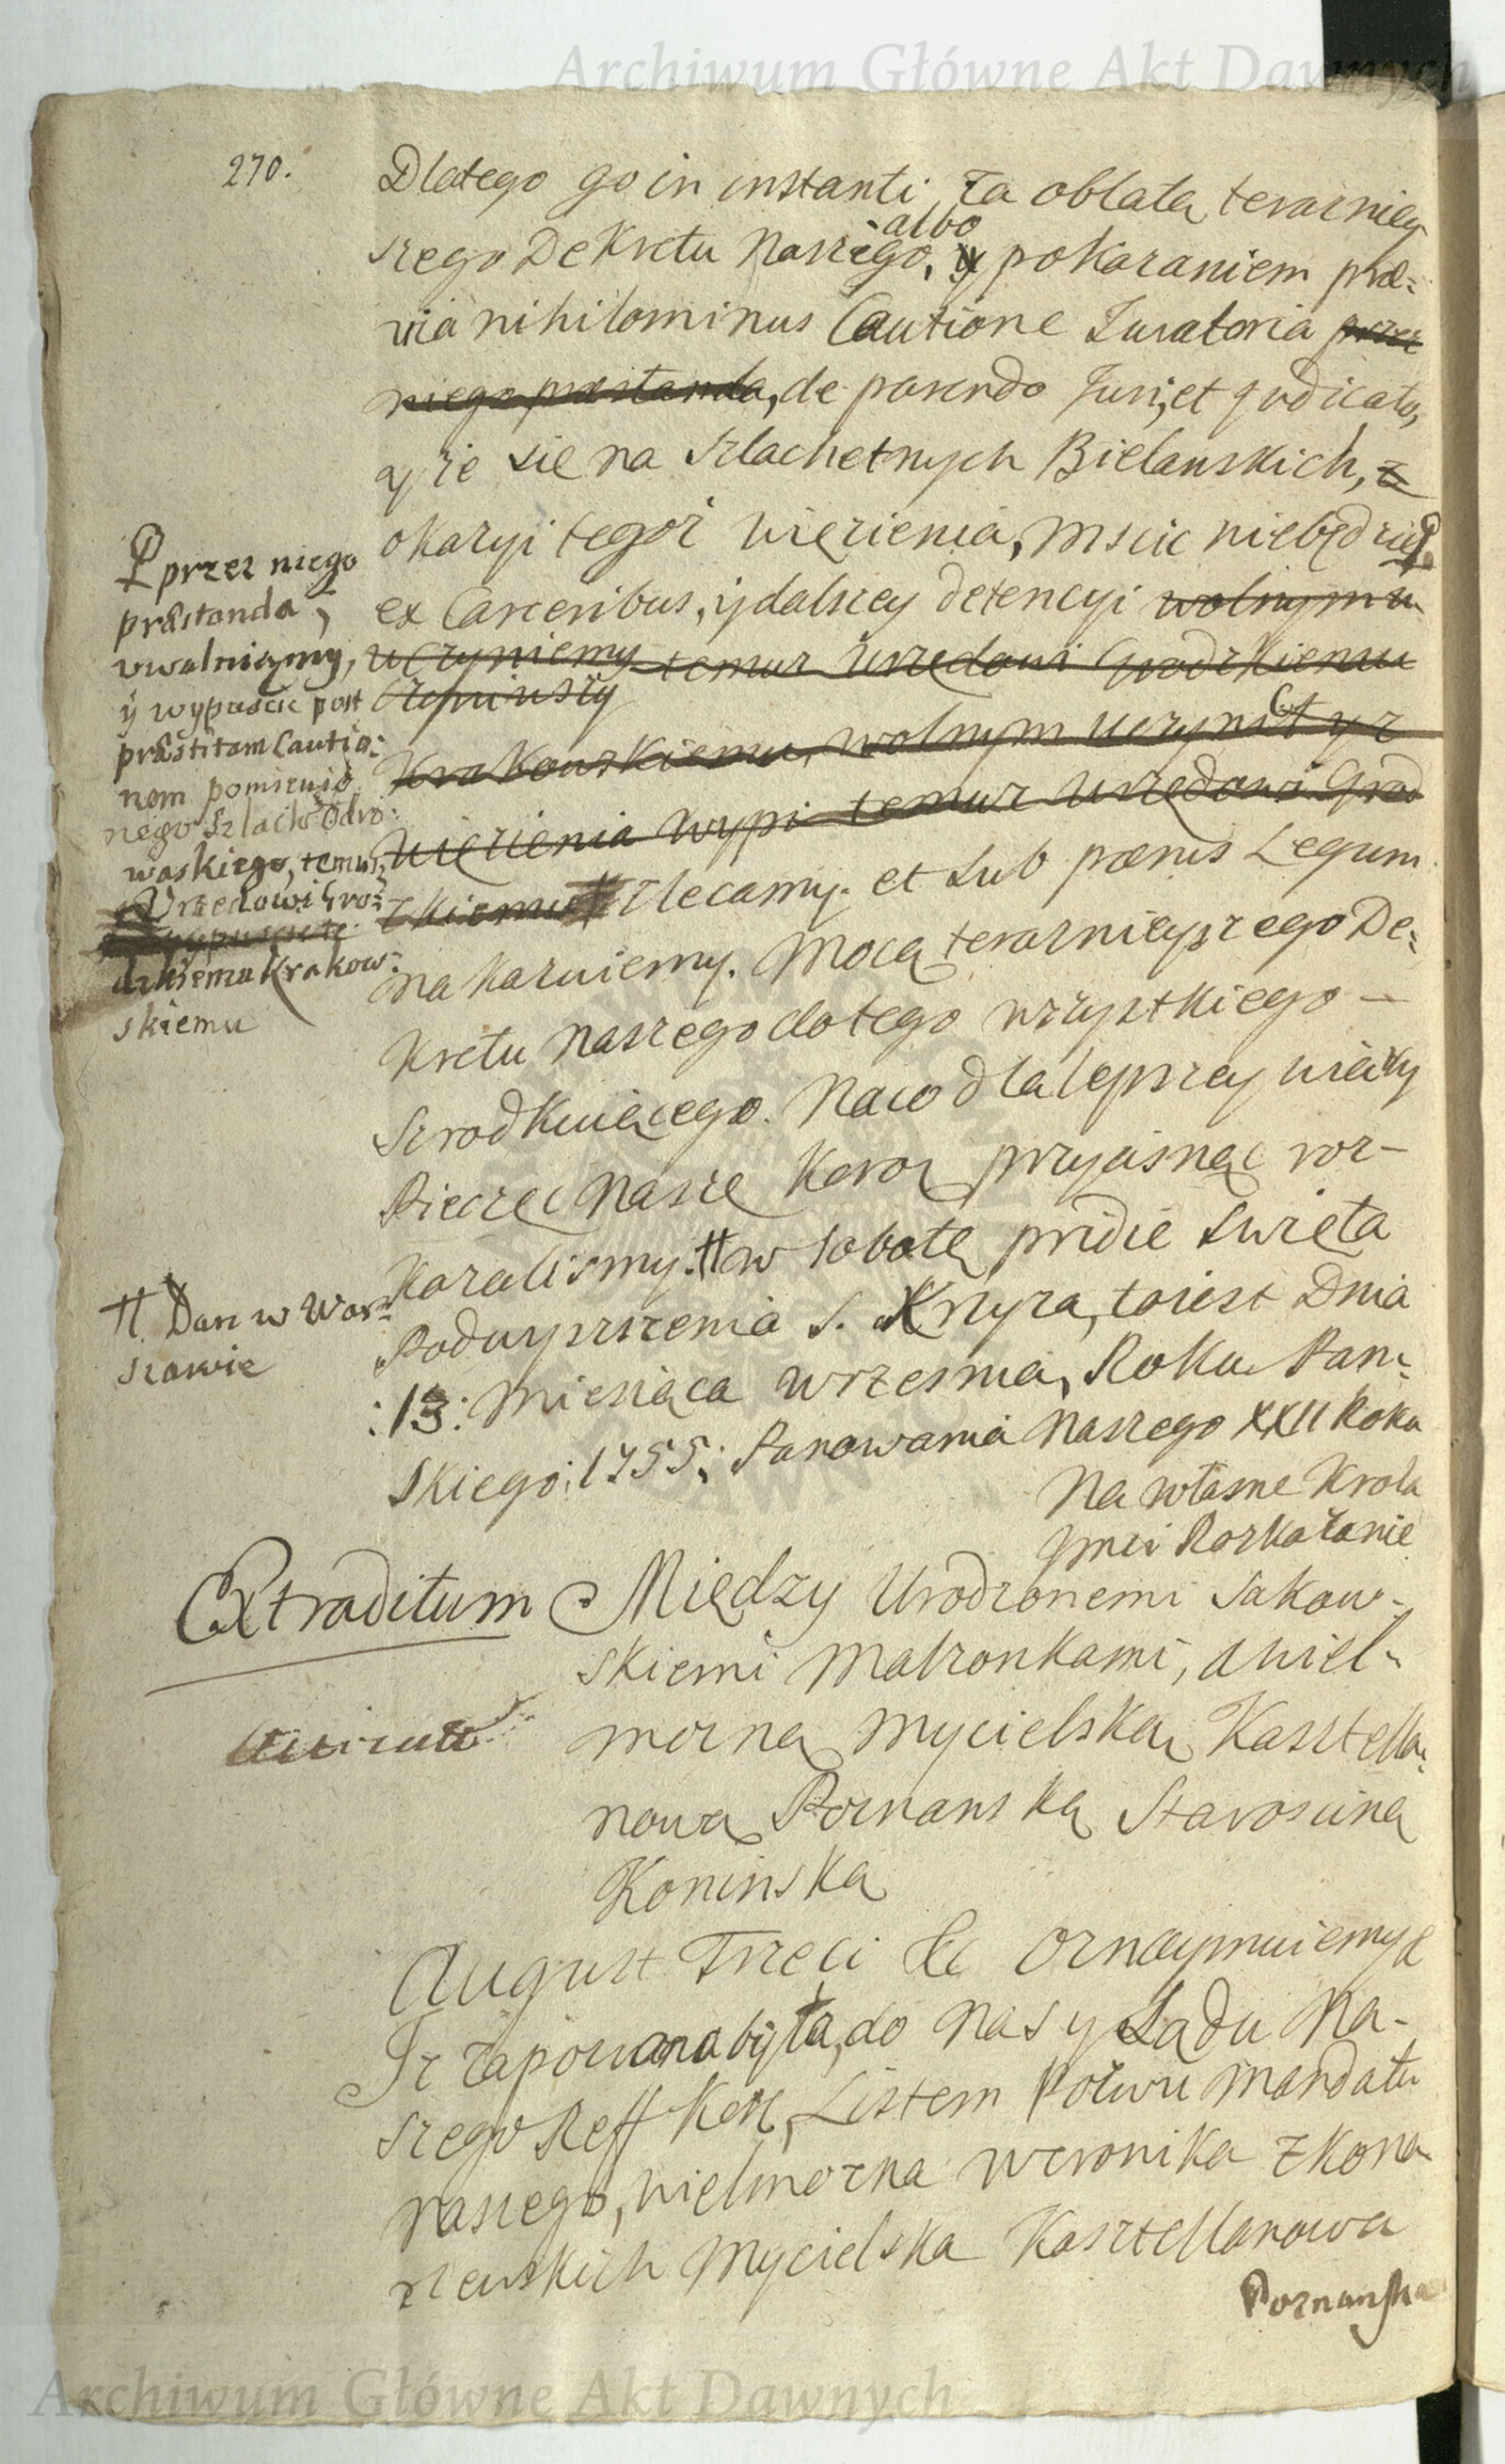 Archiwum Główne Akt Dawnych
270.
Dlatego go in instanti, za oblatą teraźniey
szego Dekretu Naszego, albo y pokaraniem præ=
via nihilominus Cautione Juratoria przez
niego præstanda, de parendo Juri, et judicato,
y że się na Szlachetnych Bielanskich, z
okazyi tegoż więzienia, mscic niebędzie
ex Carceribus, y dalszey detencyi wolnym u
uczyniemy temuz Urzędowi Grodzkiemu
Krakowskiemu, wolnym uczynić y z
więzienia wypi temuz Urzędowi Grod
zkiemu Zlecamy. et sub pœnis Legum
nakazuiemy. Mocą teraznieyszego De=
kretu Naszego do tego wszystkiego –
Szrodkuiącego. Naco dla lepszey wiary
Pieczęc Nasze Koroñ przycisnąc roz-
kazalismy. # w Sobotę pridie Swięta
Podwyzszenia S. Krzyza, toiest Dnia
:13: Miesiąca Wrzesnia, Roku Pan=
skiego: 1755: Panowania Naszego XXII Roku
Na własne Krola
Jmci Rozkazanie
przez niego
præstanda,
uwalniamy,
y wypuscic post
præstitam Cautio=
nem pomienio
nego Szlach Odro=
waskiego, temuz
Urzędowi Gro=
wypuscic
dzkiemu Krakow=
skiemu
# Dan w War=
szawie
Extraditum
Między Urodzonemi Sakow-
skiemi Małzonkami, a Wiel-
mozną Mycielską Kasztella=
nową Poznanską Starosciną
Koninską
August Trzeci &c Oznaymuiemy &
Iż zapozwana była, do Nas y Sądu Na-
szego Reff Kor, Listem Pozwu Mandatu
naszego, Wielmożna Weronika z Kona
rzewskich Mycielska Kasztellanowa
Poznanska
Archiwum Główne Akt Dawnych